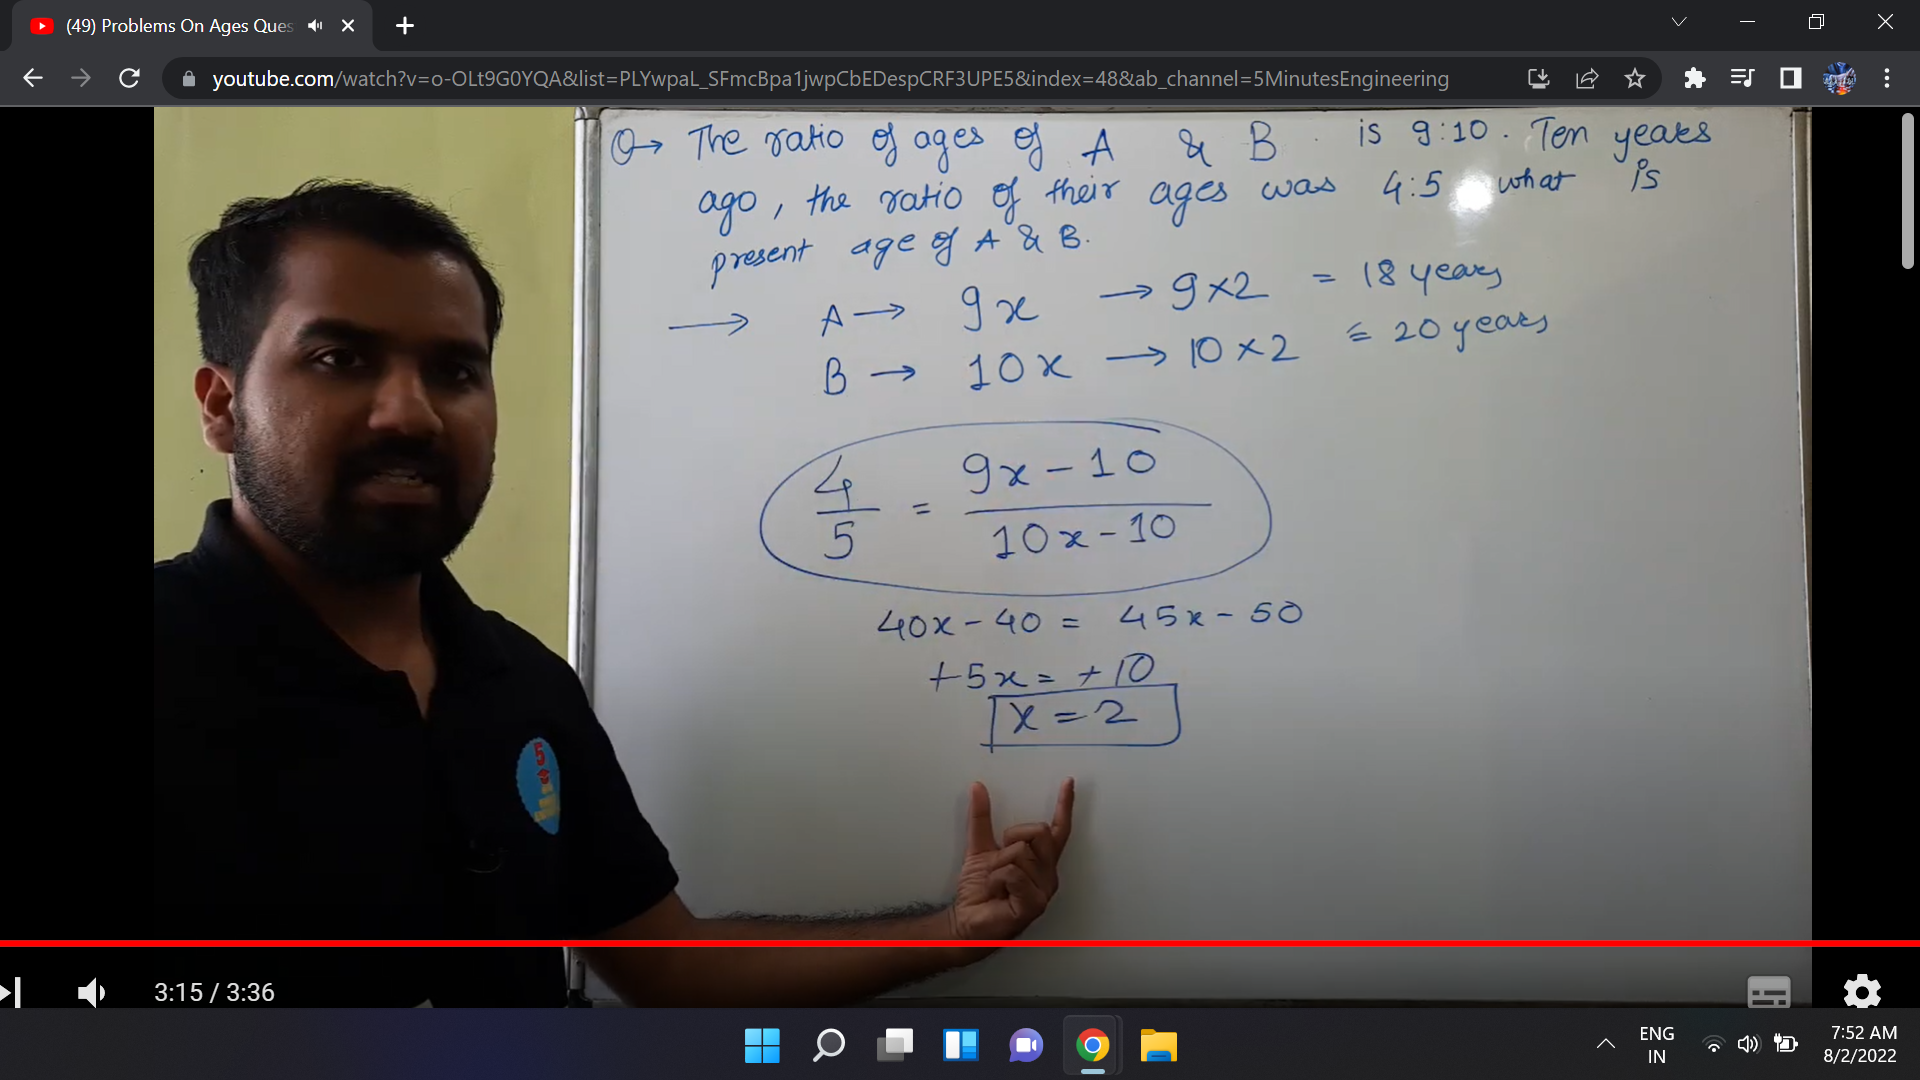 (49) Problems On Ages Ques
youtube.com/watch?v=o-OLt9G0YQA&list=PLYwpaL_SFmcBpa1jwpCbEDespCRF3UPE5&index=48&ab_channel=5MinutesEngineering
Q→ The ratio of ages of A & B . is 9:10. Ten years
ago, the ratio of their ages was 4:5 what is
present age of A & B.
→ A → 9x → 9×2 = 18 years
B → 10x → 10×2 = 20 years
4/5 = 9x-10/10x-10
40x-40 = 45x-50
+5x = +10
x = 2
5
3:15 / 3:36
ENG
IN
7:52 AM
8/2/2022